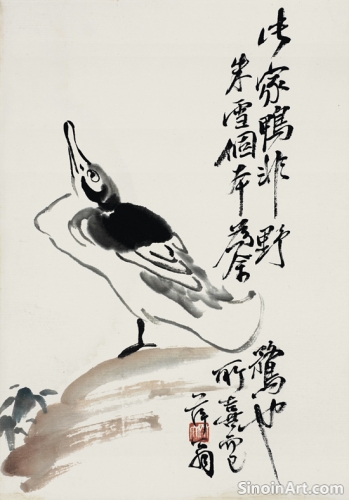 此家鸭非野鶩也
朱雪個本為余
所喜而已
萍翁
SinoinArt.com